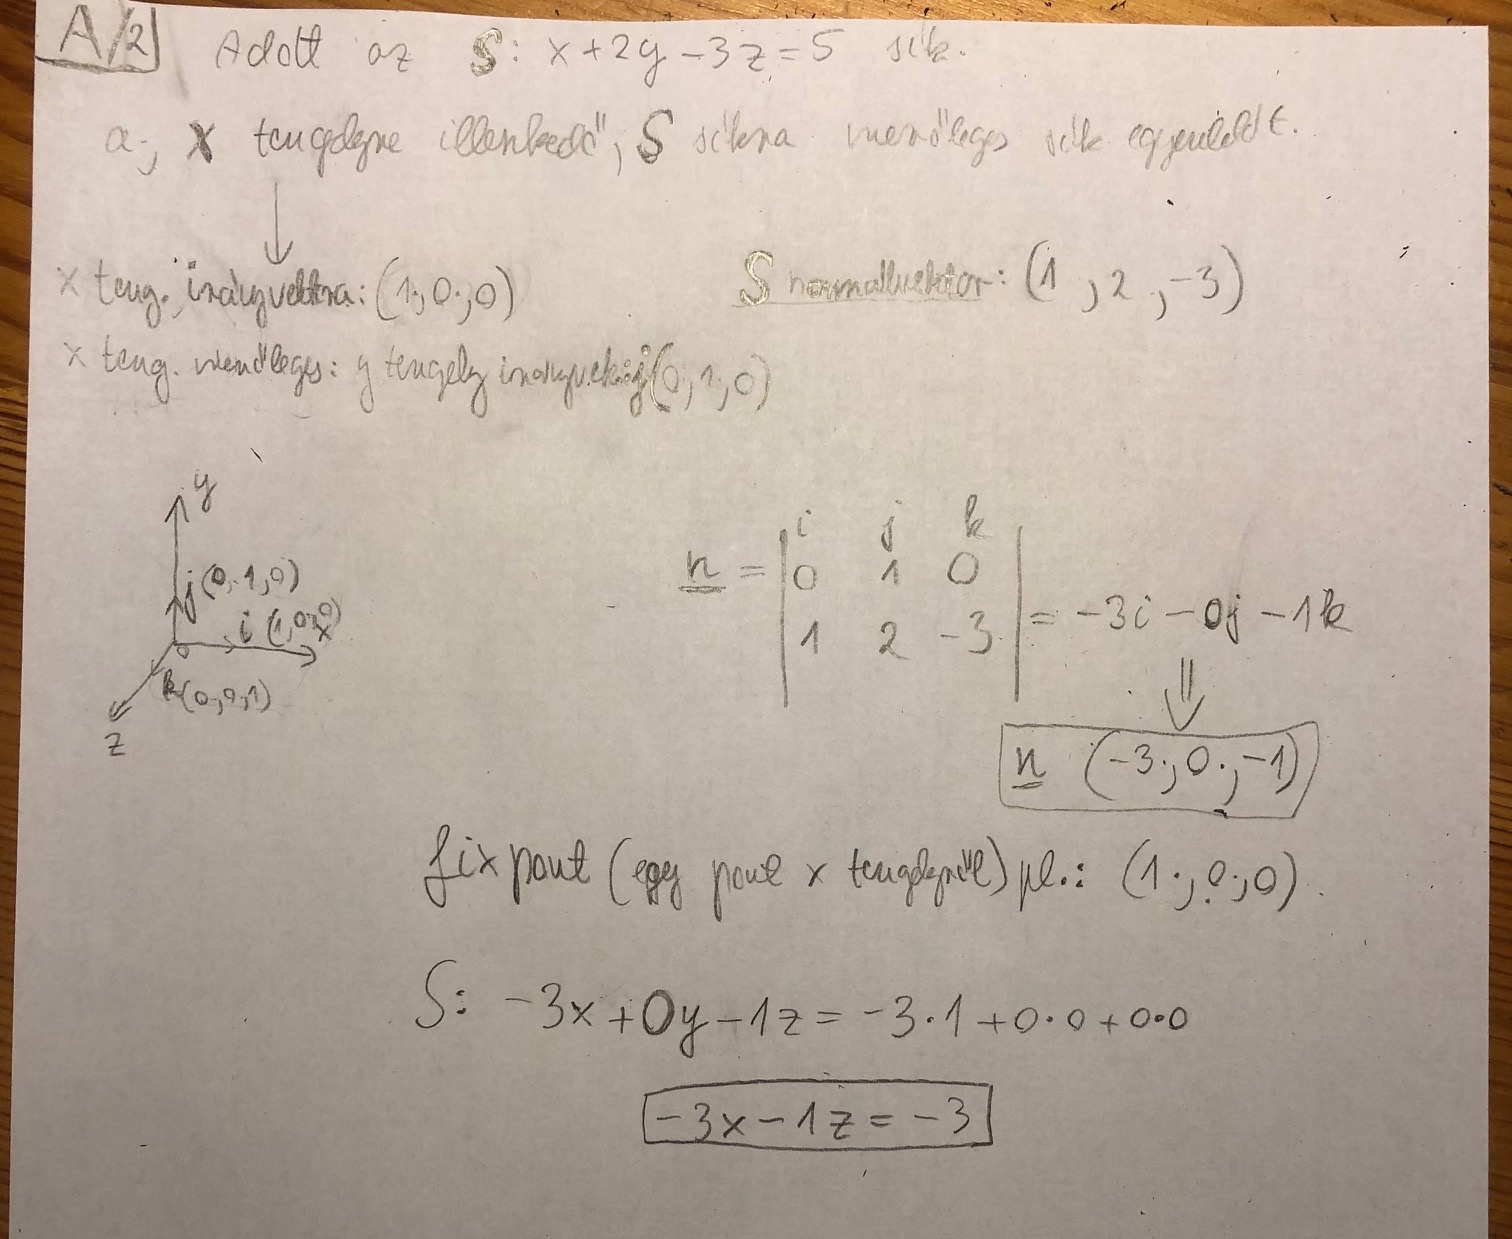 A/2 Adott az S: x+2y-3z=5 sík.
a., X tengelyre illeszkedő, S síkra merőleges sík egyenlete.
x teng. irányvektora: (1;0;0) S normálvektor: (1,2,-3)
x teng. merőleges: y tengely irányvek: j(0;1;0)
y
j(0,1,0)
i (1,0,0)
x
0
k(0,0,1)
z
i j k
n = | 0 1 0 |
| 1 2 -3 | = -3i - 0j - 1k
⇓
n (-3;0;-1)
fix pont (egy pont x tengelyről) pl.: (1;0;0).
S: -3x+0y-1z = -3·1+0·0+0·0
-3x-1z=-3